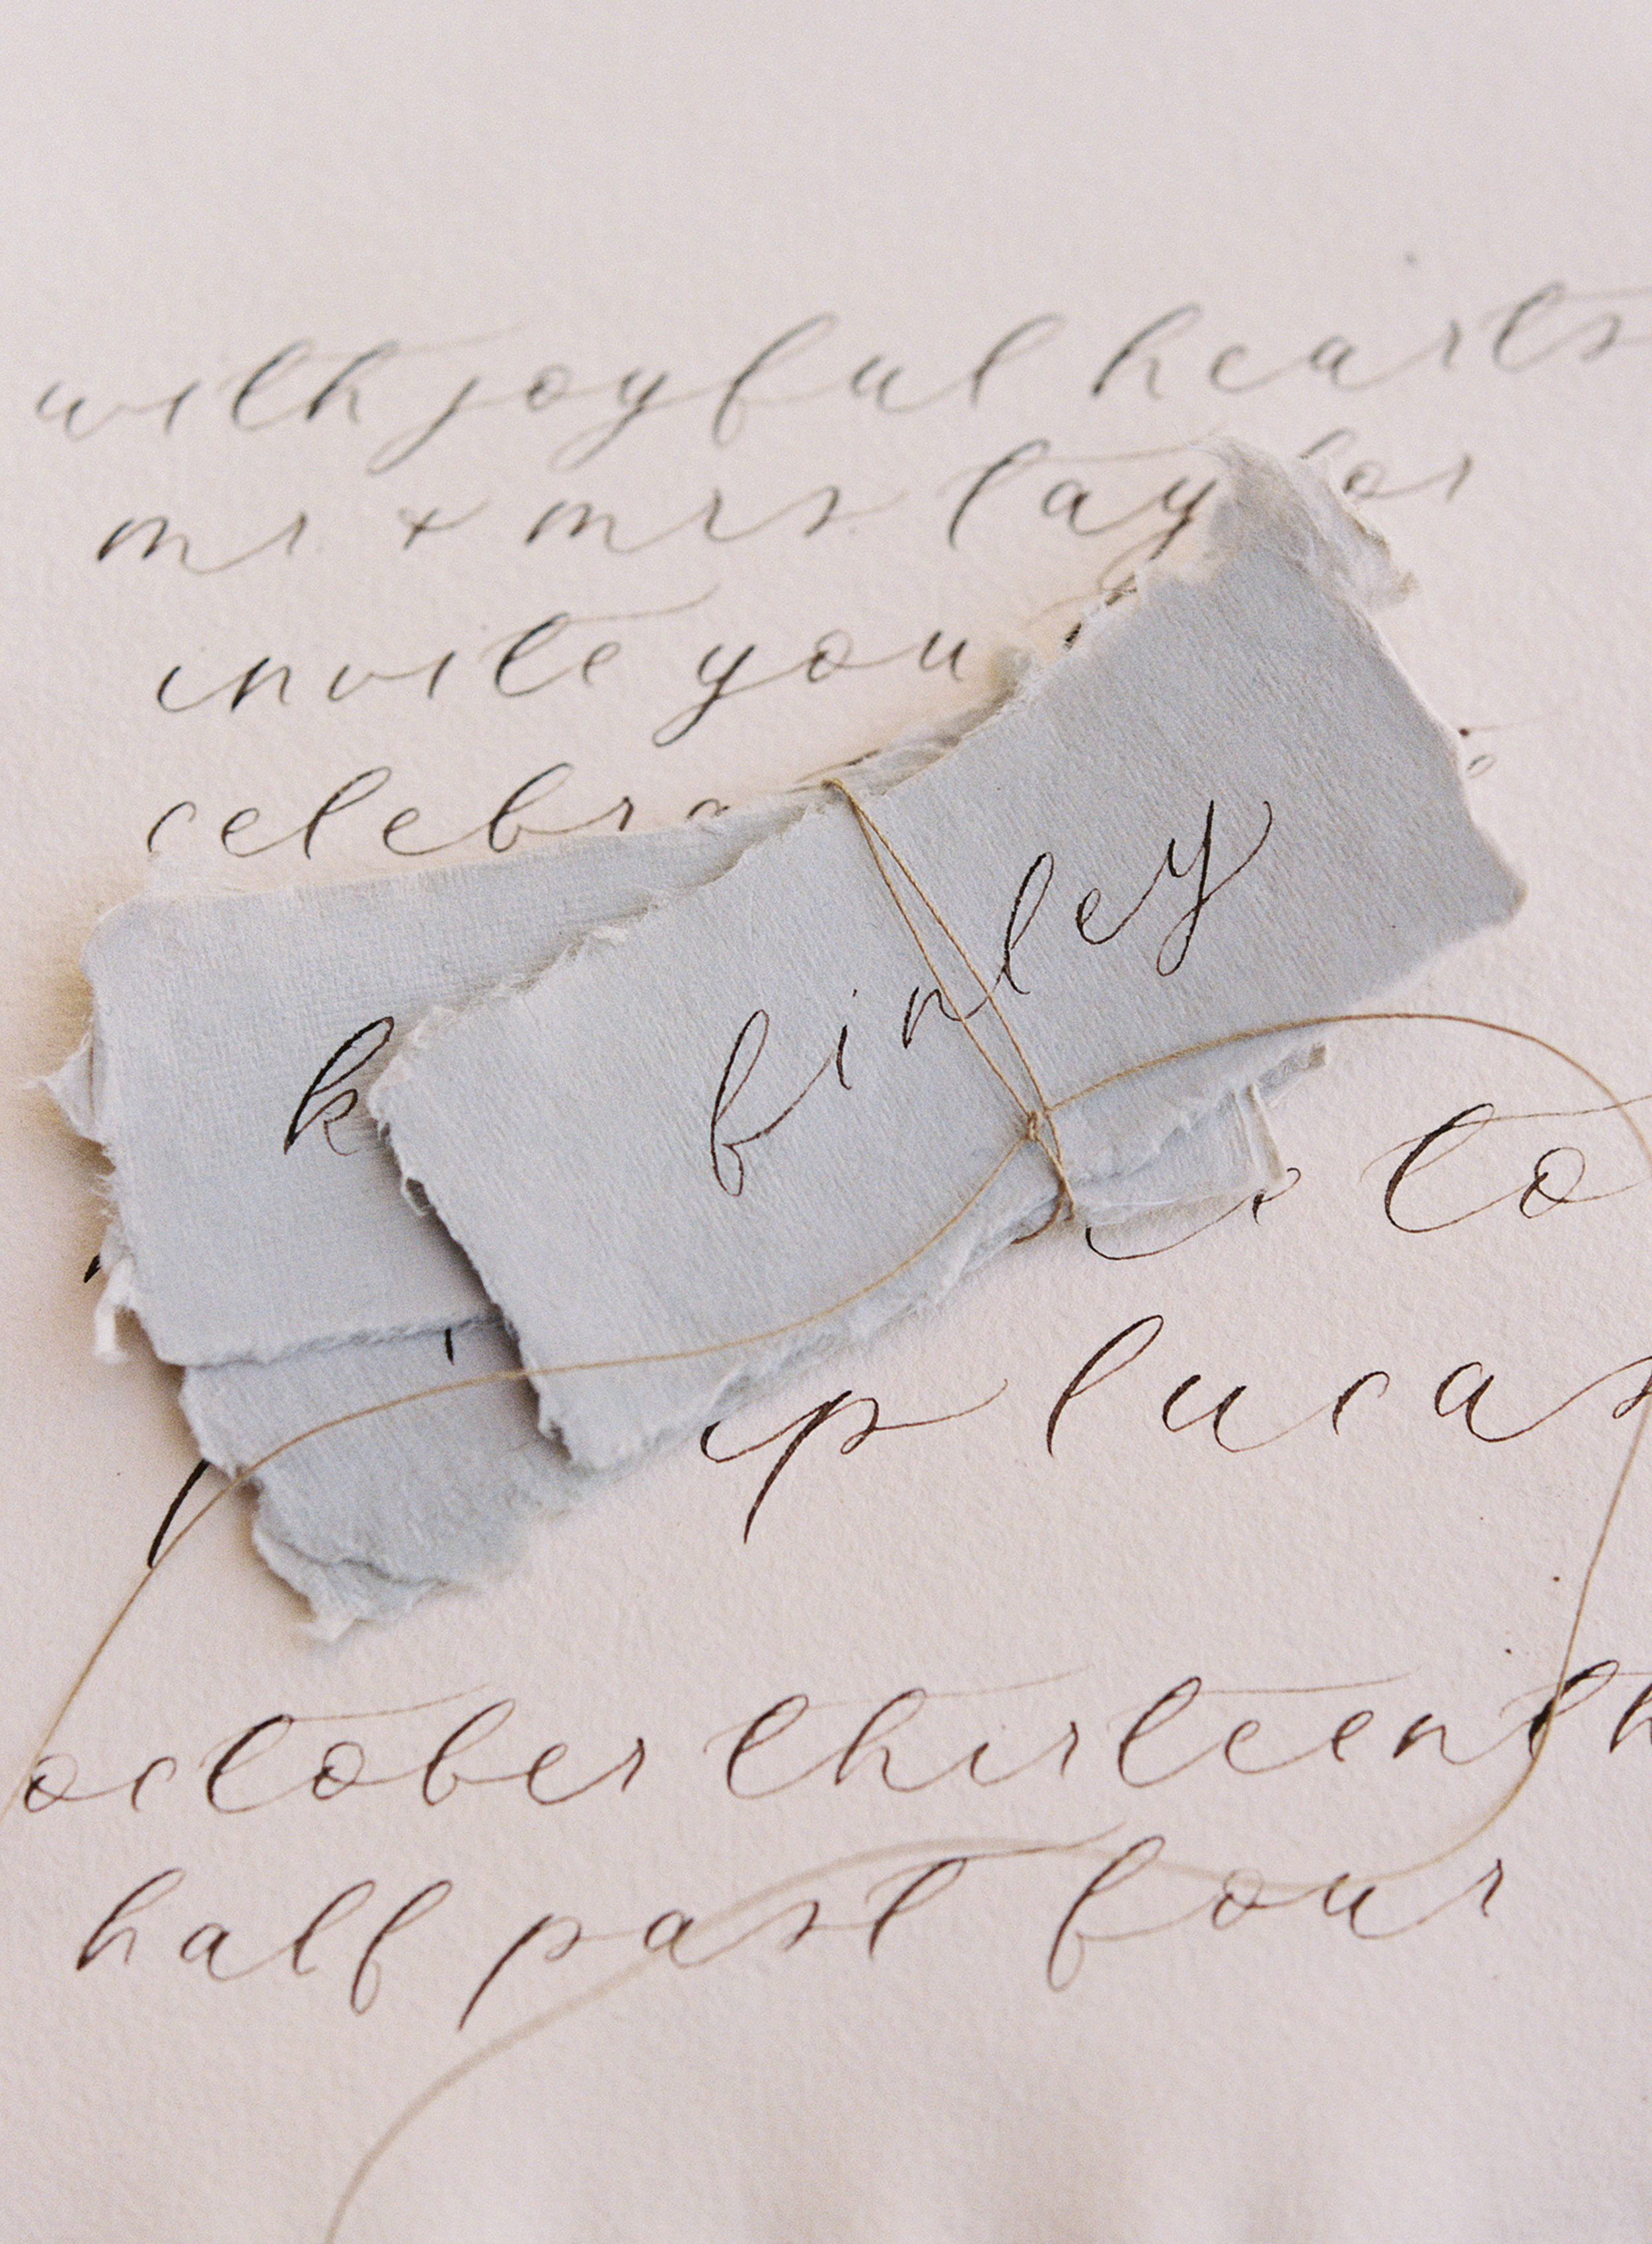 with joyful hearts
mr + mrs taylor
invite you
finley
k
to
lucas
october thirteenth
half past four